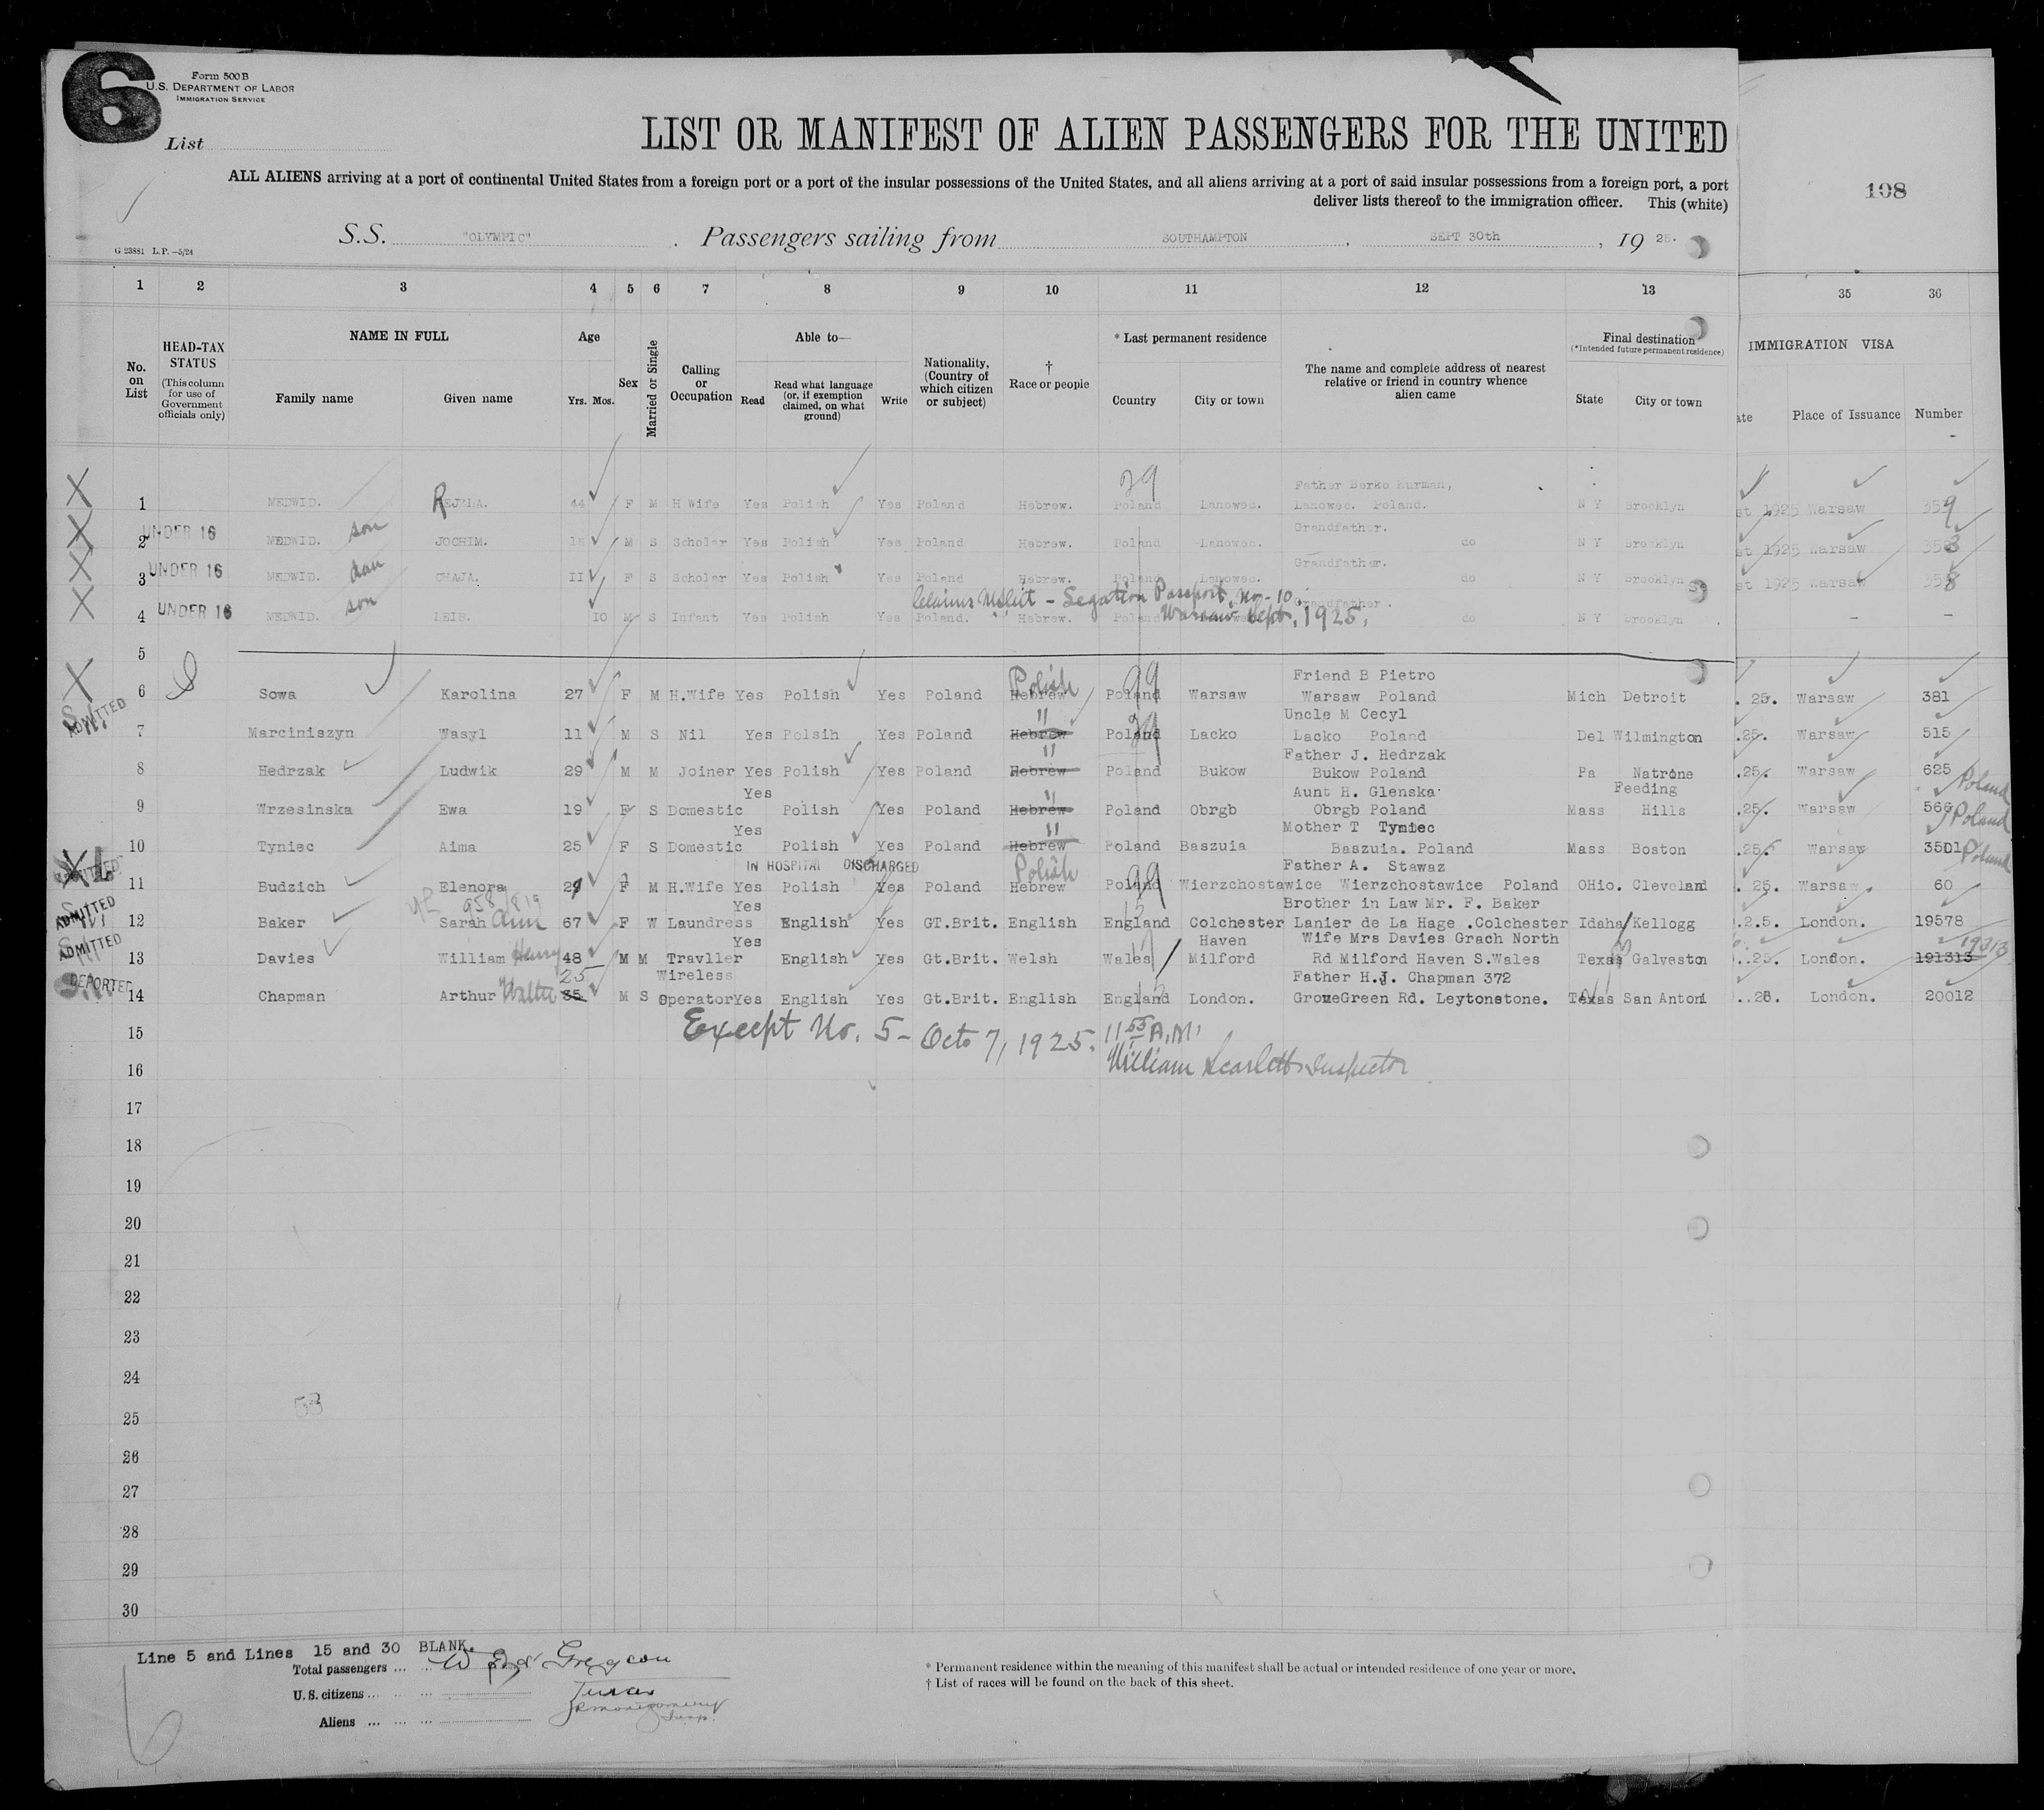 6
Form 500 B
U.S. DEPARTMENT OF LABOR
IMMIGRATION SERVICE
List
LIST OR MANIFEST OF ALIEN PASSENGERS FOR THE UNITED
ALL ALIENS arriving at a port of continental United States from a foreign port or a port of the insular possessions of the United States, and all aliens arriving at a port of said insular possessions from a foreign port, a port
deliver lists thereof to the immigration officer. This (white)
108
S.S. "OLYMPIC". Passengers sailing from SOUTHAMPTON, SEPT 30th, 19 25.
G 23881 L.P.—5/24
1 2 3 4 5 6 7 8 9 10 11 12 13 35 36
No. on List
HEAD-TAX STATUS
(This column for use of Government officials only)
NAME IN FULL
Family name Given name
Age
Yrs. Mos.
Sex
Married or Single
Calling or Occupation
Able to—
Read
Read what language (or, if exemption claimed, on what ground)
Write
Nationality, (Country of which citizen or subject)
† Race or people
* Last permanent residence
Country City or town
The name and complete address of nearest relative or friend in country whence alien came
Final destination
(*Intended future permanent residence)
State City or town
IMMIGRATION VISA
ate Place of Issuance Number
29
Father Berko Kurman,
1 MEDWID. REJZLA. 44 F M H Wife Yes Polish Yes Poland Hebrew. Poland Lanowec. Lanowec. Poland. N Y Brooklyn st 1925 Warsaw 359
Grandfather.
2 UNDER 16 MEDWID. son JOCHIM. 15 M S Scholar Yes Polish Yes Poland Hebrew. Poland Lanowec. do N Y Brooklyn st 1925 Warsaw 353
Grandfather.
3 UNDER 16 MEDWID. dau CHAJA. 11 F S Scholar Yes Polish Yes Poland Hebrew. Poland Lanowec. do N Y Brooklyn st 1925 Warsaw 358
Passport, No-10,
Warsaw Sept, 1925,
Grandfather.
4 UNDER 16 MEDWID. son LEIB. 10 M S Infant Yes Polish Yes Poland. Hebrew. Poland do N Y Brooklyn - -
5
Polish 99 Friend B Pietro
6 Sowa Karolina 27 F M H.Wife Yes Polish Yes Poland Hebrew Poland Warsaw Warsaw Poland Mich Detroit . 25. Warsaw 381
ADMITTED
" Uncle M Cecyl
7 Marciniszyn Wasyl 11 M S Nil Yes Polsih Yes Poland Hebrew Poland Lacko Lacko Poland Del Wilmington .25. Warsaw 515
" Father J. Hedrzak
8 Hedrzak Ludwik 29 M M Joiner Yes Polish Yes Poland Hebrew Poland Bukow Bukow Poland Pa Natrone .25. Warsaw 625 Poland
Yes " Aunt H. Glenska Feeding
9 Wrzesinska Ewa 19 F S Domestic Polish Yes Poland Hebrew Poland Obrgb Obrgb Poland Mass Hills .25. Warsaw 566 Poland
Yes " Mother T Tymiec
10 Tyniec Aima 25 F S Domestic Polish Yes Poland Hebrew Poland Baszuia Baszuia. Poland Mass Boston .25. Warsaw 3501 Poland
IN HOSPITAL DISCHARGED Polish 99 Father A. Stawaz
11 Budzich Elenora 29 F M H.Wife Yes Polish Yes Poland Hebrew Poland Wierzchostawice Wierzchostawice Poland OHio. Cleveland . 25. Warsaw. 60
958/819 Yes Brother in Law Mr. F. Baker
12 ADMITTED Baker Sarah Ann 67 F W Laundress English Yes GT.Brit. English England Colchester Lanier de La Hage .Colchester Idaha Kellogg .2.5. London. 19578
Yes Haven Wife Mrs Davies Grach North 19313
13 ADMITTED Davies William Henry 48 M M Travller English Yes Gt.Brit. Welsh Wales Milford Rd Milford Haven S.Wales Texas Galveston ..25. London. 191313
25 Wireless Father H.J. Chapman 372
14 DEPORTED Chapman Arthur Walter 35 M S Operator Yes English Yes Gt.Brit. English England London. GroweGreen Rd. Leytonstone. Texas San Antoni ..25. London. 20012
15 Except No. 5 - Oct 7, 1925. 11 55 A.M.
16 William Scarlett Inspector
17
18
19
20
21
22
23
24
25 53
26
27
28
29
30
Line 5 and Lines 15 and 30 BLANK.
Total passengers ... ...
U.S. citizens ... ... ...
Aliens ... ... ...
* Permanent residence within the meaning of this manifest shall be actual or intended residence of one year or more.
† List of races will be found on the back of this sheet.